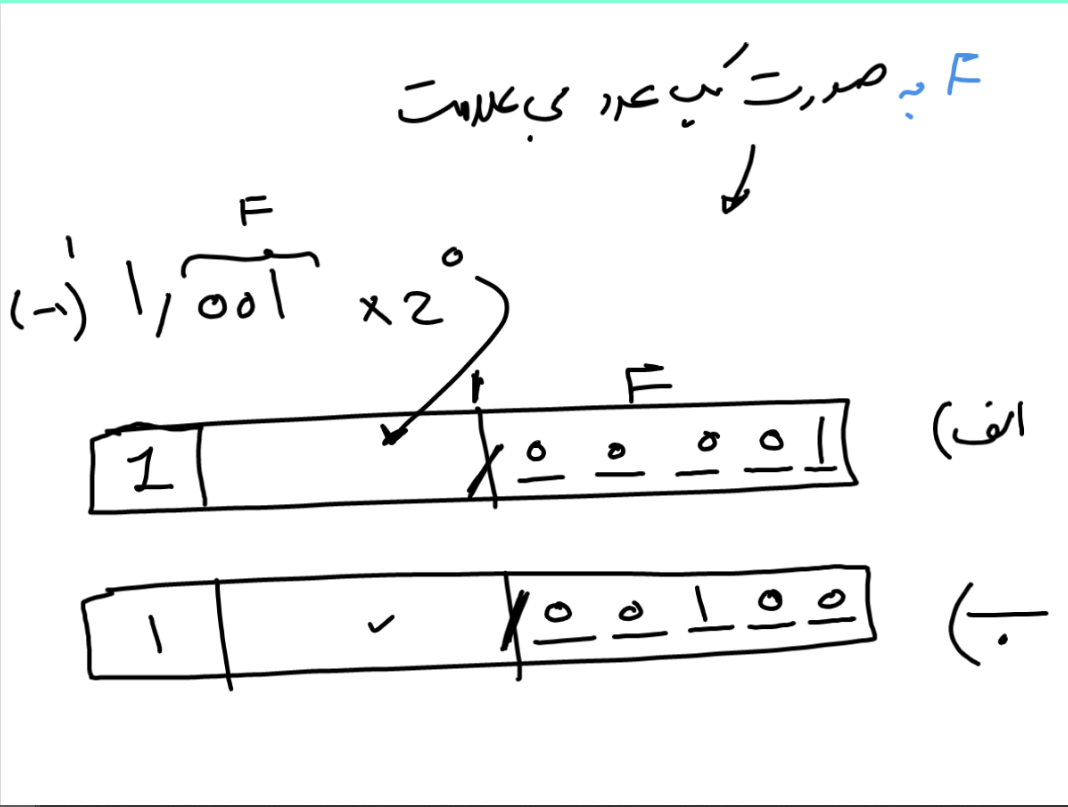 F به صورت یک عدد بی علامت
F
(-1)¹ 1,001 × 2⁰
F
الف) 1 1 / 0 0 0 0 1
ب) 1 ✓ / 0 0 1 0 0